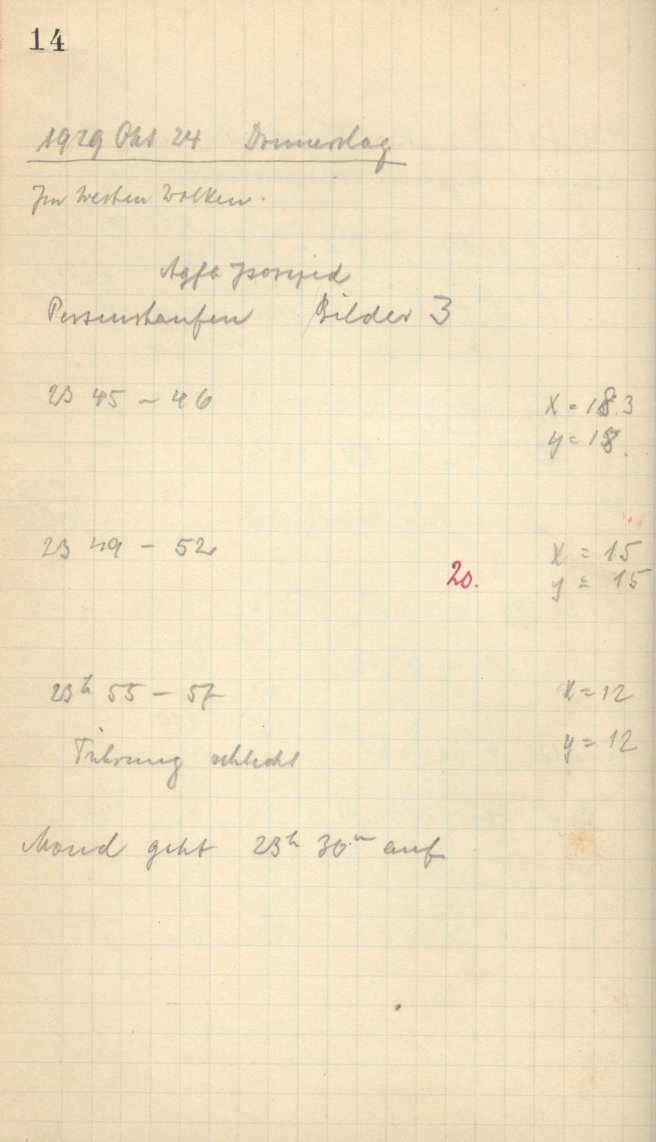 14
1929 Okt 24 Donnerstag
Im Westen Wolken.
Agfa Isorapid
Perseushaufen Bilder 3
23 45 – 46 x = 18.3
y = 18.
23 49 – 52 x = 15
20. y = 15
23h 55 – 57 x = 12
y = 12
Führung schlecht
Mond geht 23h 30m auf